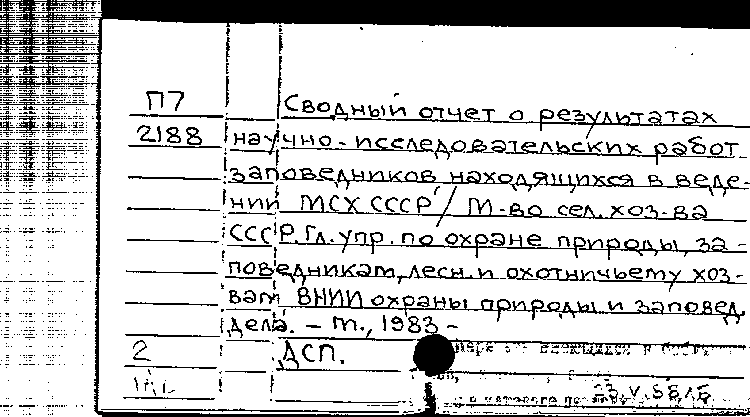 П7 Сводный отчет о результатах
2188 научно-исследовательских работ
заповедников находящихся в веде-
нии МСХ СССР / М-во сел. хоз-ва
СССР. Гл. упр. по охране природы, за-
поведникам, лесн. и охотничьему хоз-
вам ВНИИ охраны природы и заповед.
дела. - М., 1983 -
2 ДСП.